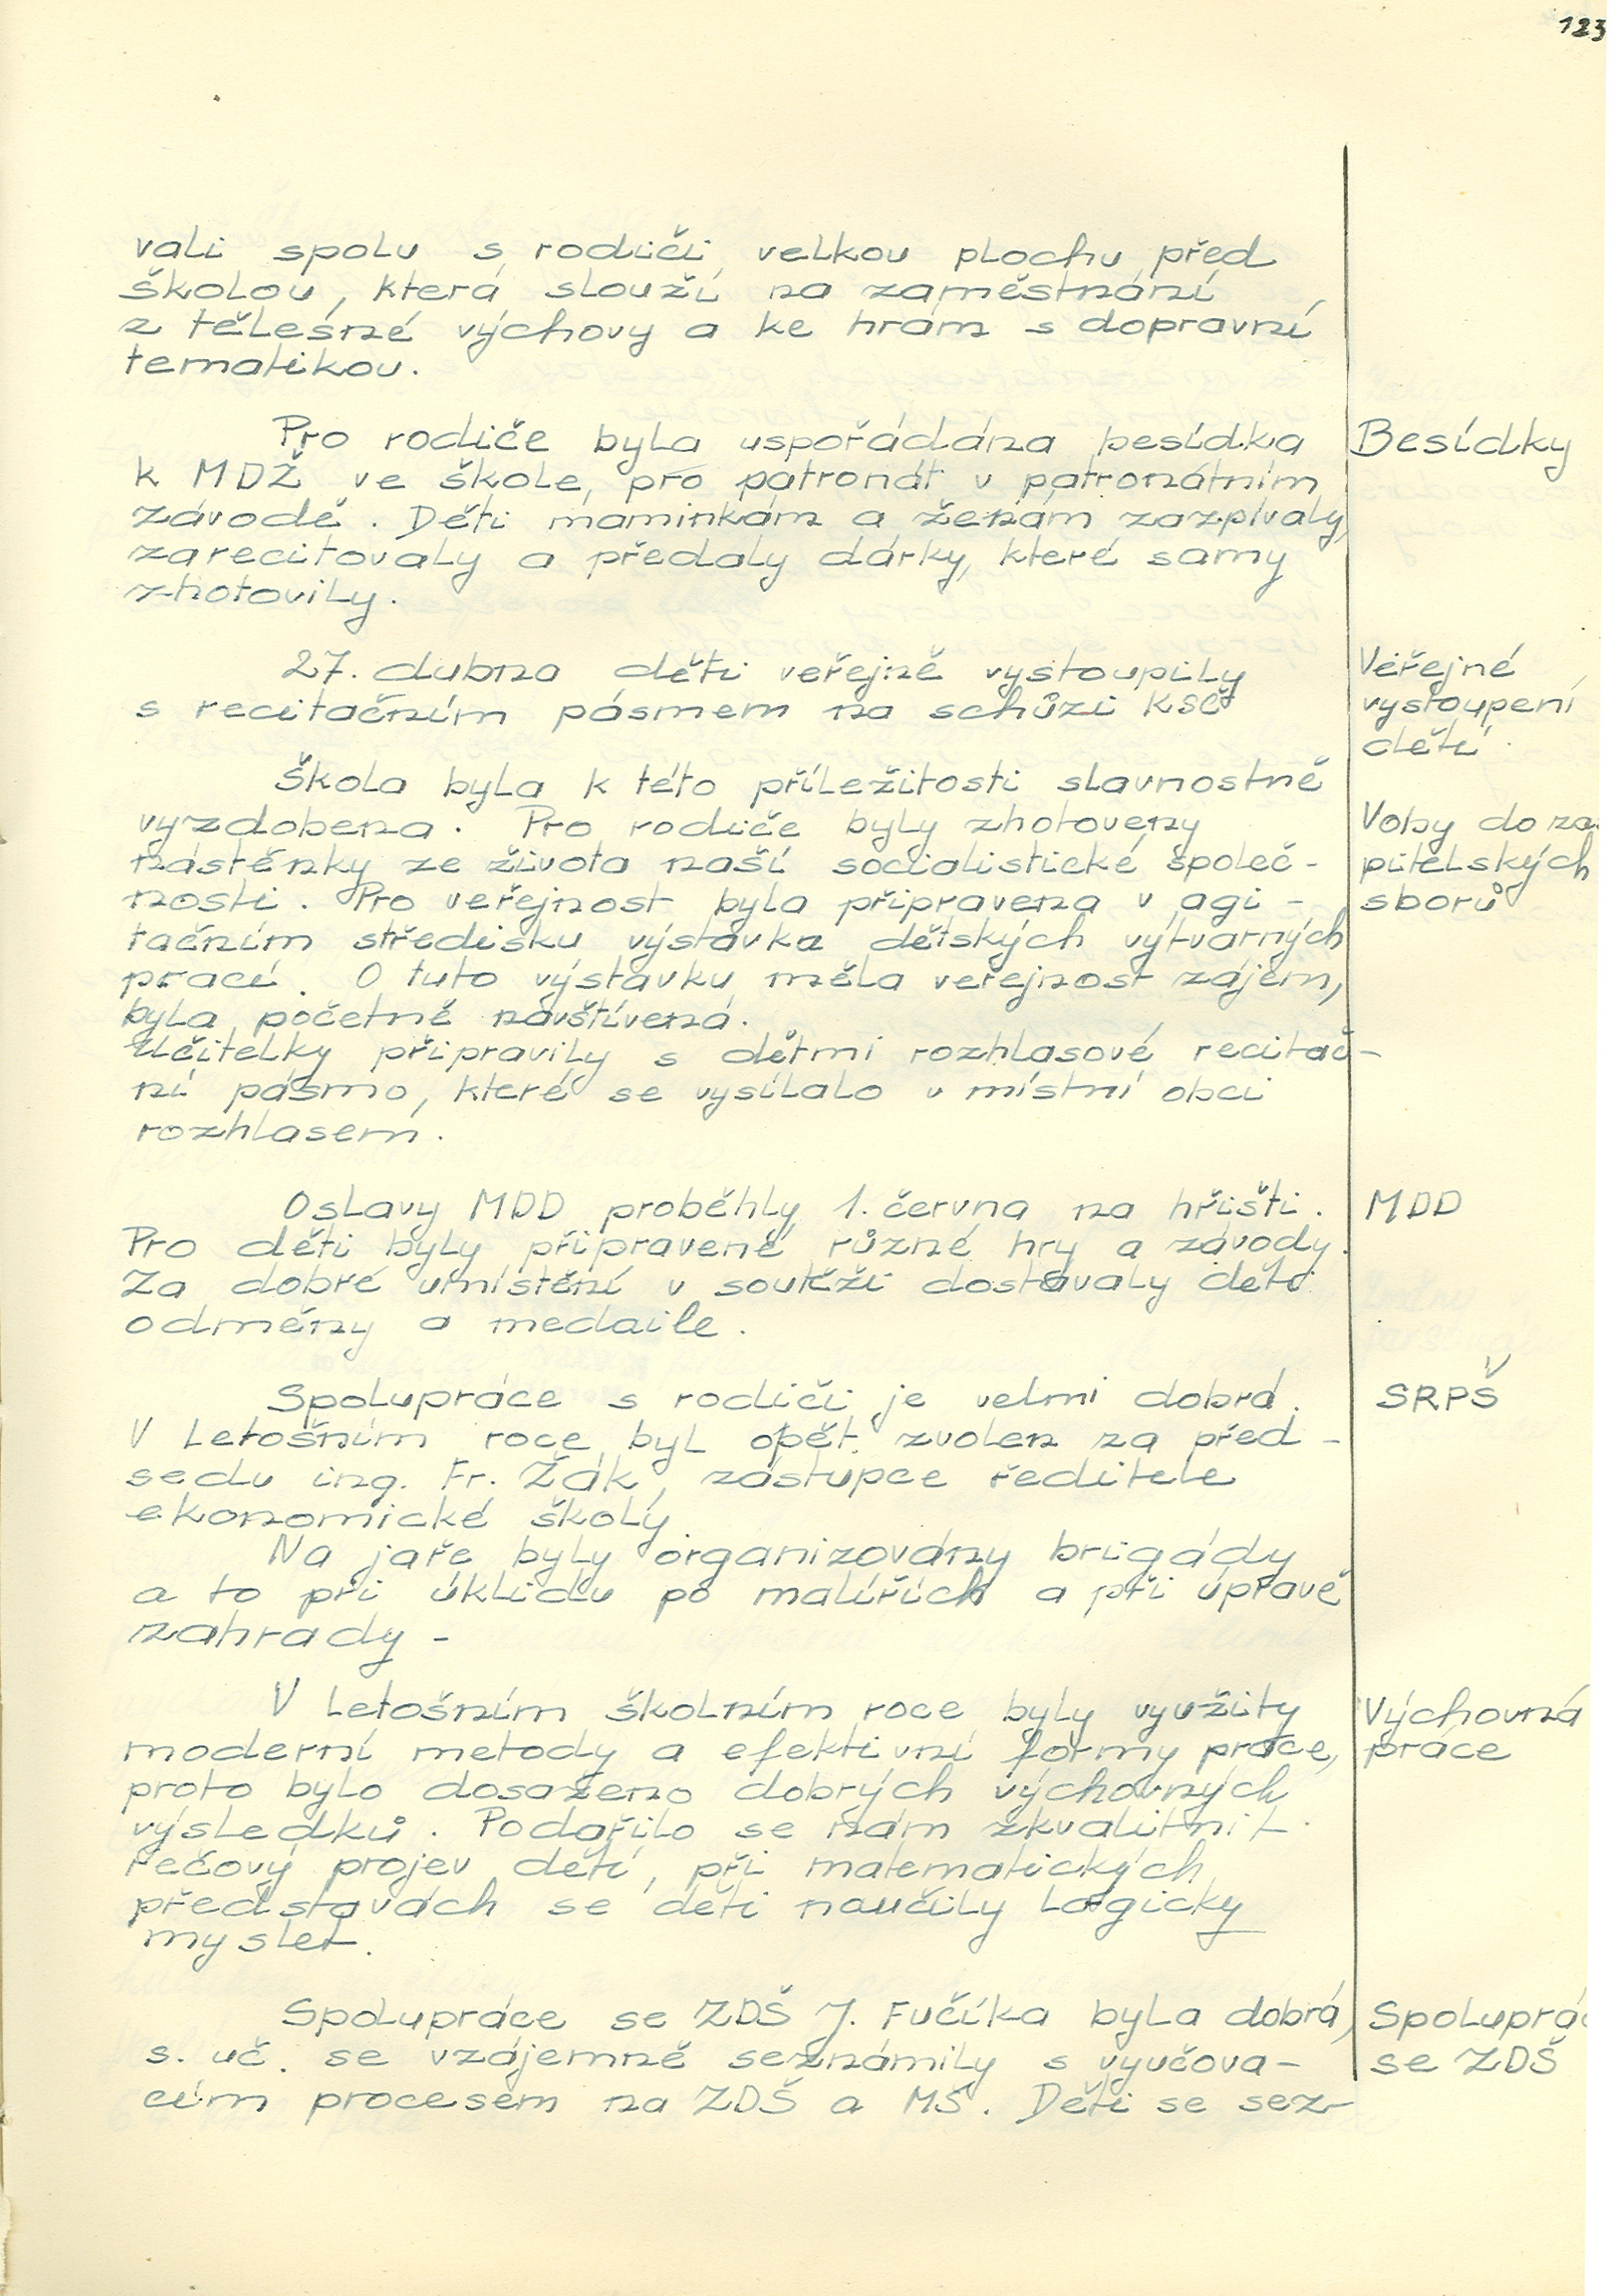 123
vali spolu s rodiči velkou plochu před
školou, která slouží na zaměstnání
z tělesné výchovy a ke hrám s dopravní
tematikou.
Pro rodiče byla uspořádána besídka
Besídky
k MDŽ ve škole, pro patronát v patronátním
závodě. Děti maminkám a ženám zazpívaly,
zarecitovaly a předaly dárky, které samy
zhotovily.
27. dubna děti veřejně vystoupily
s recitačním pásmem na schůzi KSČ
Veřejné
vystoupení
dětí.
Škola byla k této příležitosti slavnostně
vyzdobena. Pro rodiče byly zhotoveny
nástěnky ze života naší socialistické společ-
nosti. Pro veřejnost byla připravena v agi-
tačním středisku výstavka dětských výtvarných
prací. O tuto výstavku měla veřejnost zájem,
byla početně navštívená.
Volby do za-
pitelských
sborů
Učitelky připravily s dětmi rozhlasové recitač-
ní pásmo, které se vysílalo v místní obci
rozhlasem.
Oslavy MDD proběhly 1. června na hřišti.
MDD
Pro děti byly připravené různé hry a závody.
Za dobré umístění v soutěži dostávaly děti
odměny a medaile.
Spolupráce s rodiči je velmi dobrá.
SRPŠ
V letošním roce byl opět zvolen za před-
sedu ing. Fr. Žák, zástupce ředitele
ekonomické školy.
Na jaře byly organizovány brigády
a to při úklidu po malířích a při úpravě
zahrady-
V letošním školním roce byly využity
moderní metody a efektivní formy práce,
Výchovná
práce
proto bylo dosaženo dobrých výchovných
výsledků. Podařilo se nám zkvalitnit
řečový projev dětí, při matematických
představách se děti naučily logicky
myslet.
Spolupráce se ZDŠ J. Fučíka byla dobrá,
s. uč. se vzájemně seznámily s vyučova-
Spoluprác
se ZDŠ
cím procesem na ZDŠ a MŠ. Děti se sez-